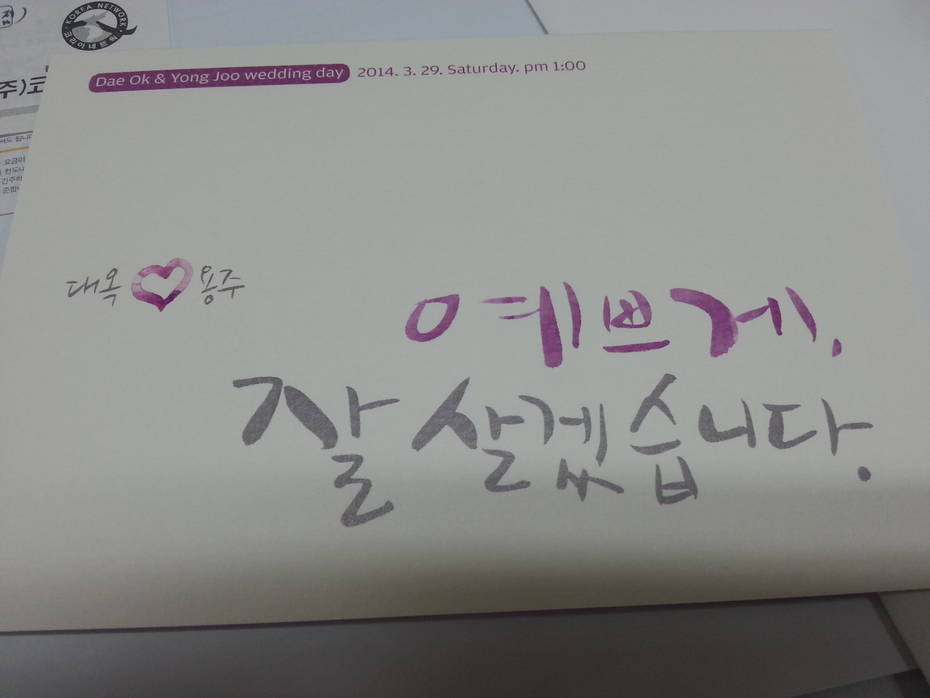 KOREA NETWORK
주)코
Dae Ok & Yong Joo wedding day 2014. 3. 29. Saturday. pm 1:00
대옥 용주
예쁘게,
잘 살겠습니다.